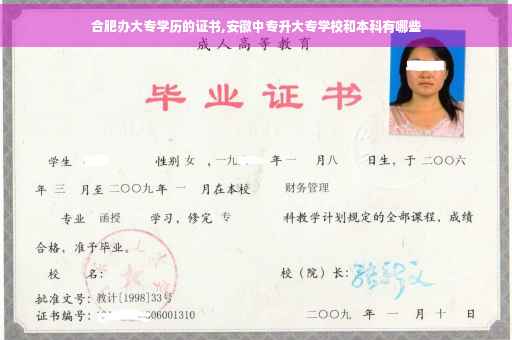 合肥办大专学历的证书,安徽中专升大专学校和本科有哪些
成人高等教育
毕业证书
学生 性别 女 ,一九 年一 月八 日生,于二〇〇六
年 三 月至二〇〇九年 一 月在本校 财务管理
专业 函授 学习,修完 专 科教学计划规定的全部课程,成绩
合格,准予毕业。
校 名: 校(院)长:
批准文号:教计[1998]33号
证书编号: 06001310 二〇〇九 年 一 月 十 日